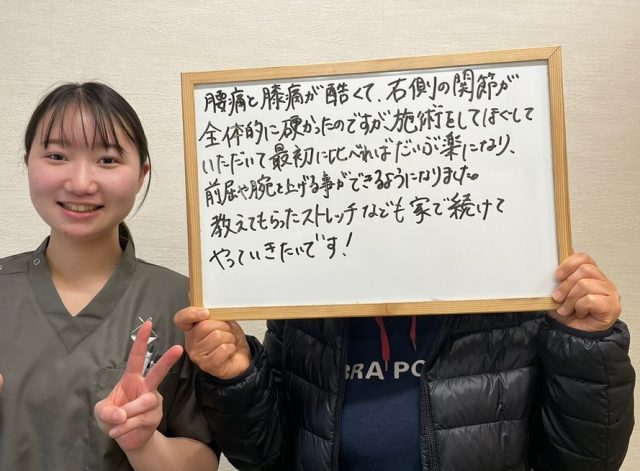 腰痛と膝痛が酷くて、右側の関節が
全体的に硬かったのですが、施術をしてほぐして
いただいて最初に比べればだいぶ楽になり、
前屈や腕を上げる事ができるようになりました。
教えてもらったストレッチなども家で続けて
やっていきたいです!
BRA PO